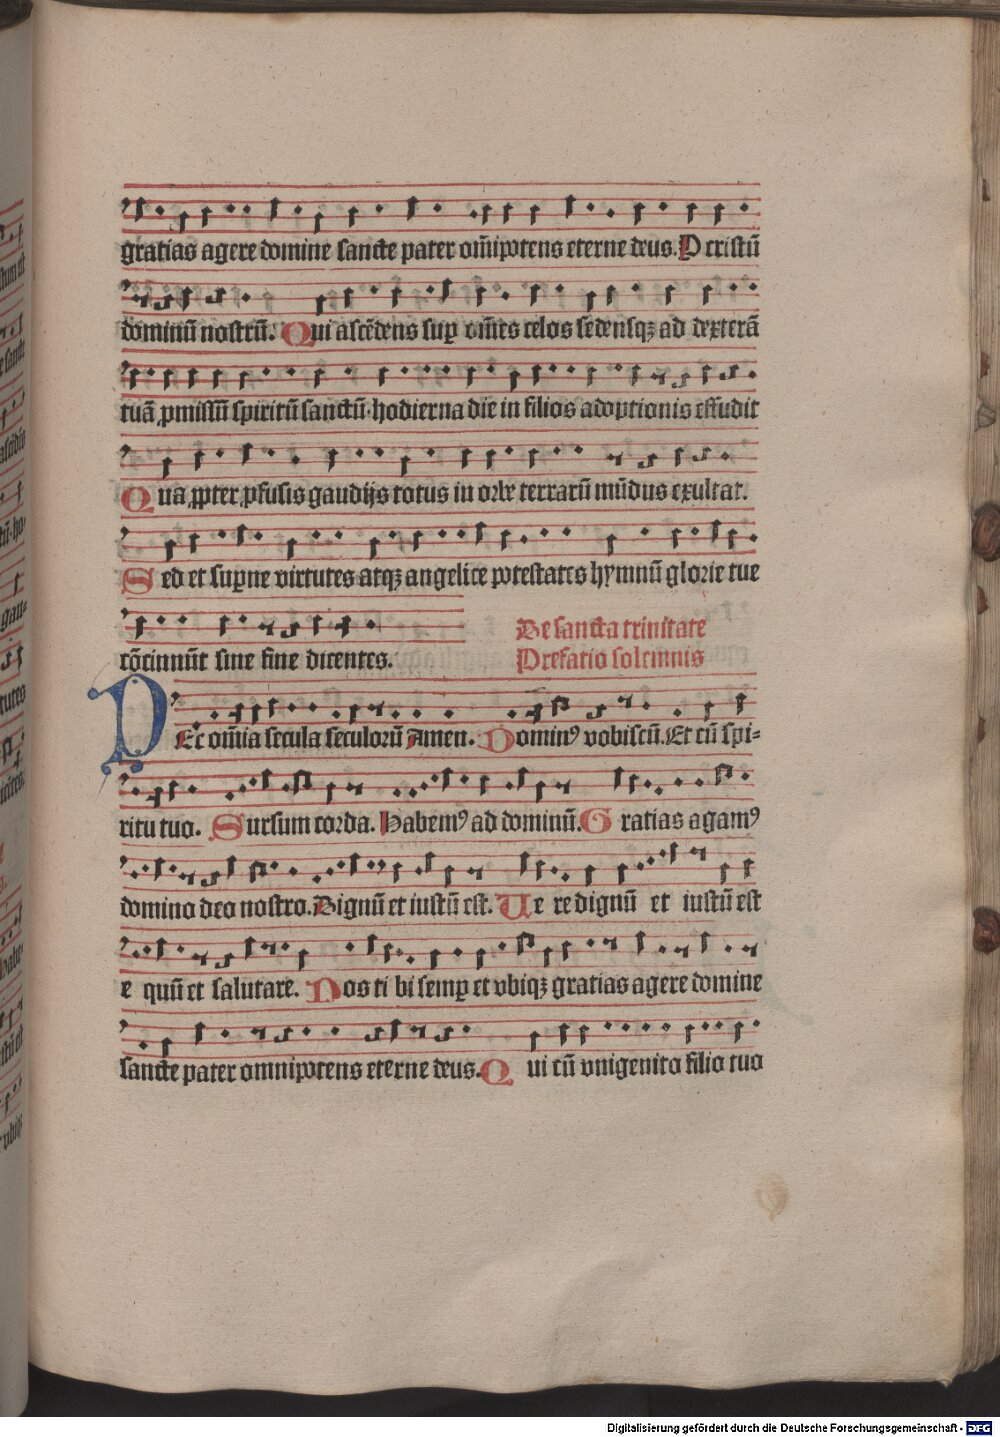 gratias agere domine sancte pater om̄ipotens eterne deus. P cristū
dominū nostrū. Qui ascēdens sup om̄es celos sedensqꝫ ad dexterā
tuā ꝓmissū spiritū sanctū hodierna die in filios adoptionis effudit
Qua ꝓpter ꝓfusis gaudijs totus in orbe terrarū mūdus exultat.
Sed et supne virtutes atqꝫ angelice potestates hymnū glorie tue
cōcinnūt sine fine dicentes.
De sancta trinitate
Prefatio solemnis
PEr om̄ia secula seculorū Amen. Dominꝰ vobiscū. Et cū spi-
ritu tuo. Sursum corda. Habemꝰ ad dominū. Gratias agamꝰ
domino deo nostro. Dignū et iustū est. Ue re dignū et iustū est
e quū et salutare. Nos ti bi semp et vbiqꝫ gratias agere domine
sancte pater omnipotens eterne deus. Qui cū vnigenito filio tuo
Digitalisierung gefördert durch die Deutsche Forschungsgemeinschaft - DFG